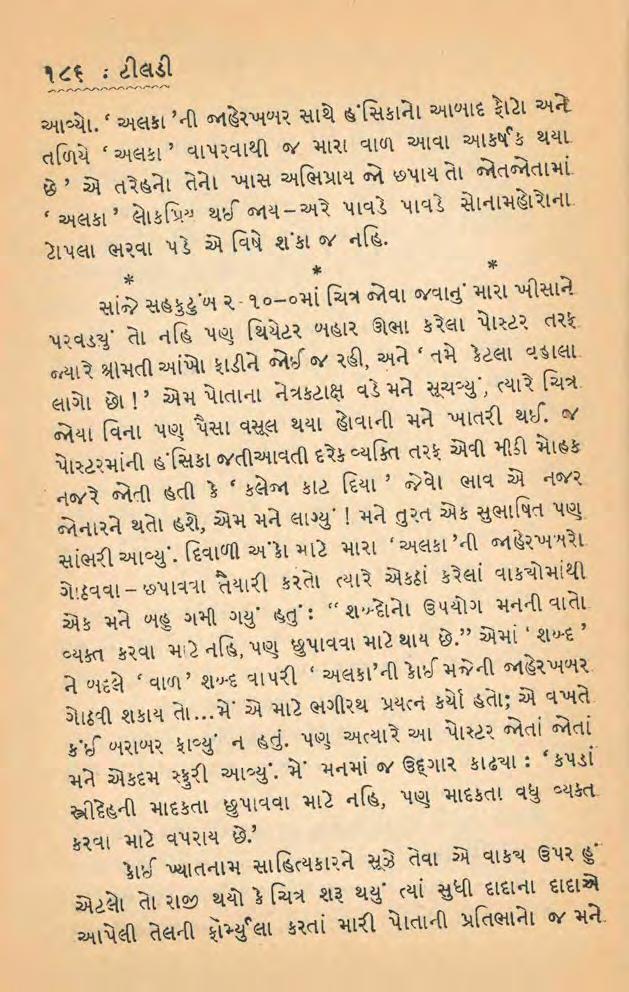 ૧૮૬ : ટીલડી
આવ્યો. ‘ અલકા ’ની જાહેરખબર સાથે હંસિકાનો આબાદ ફોટો અને
તળિયે ‘ અલકા ’ વાપરવાથી જ મારા વાળ આવા આકર્ષક થયા
છે ’ એ તરેહનો તેનો ખાસ અભિપ્રાય જો છપાય તો જોતજોતામાં
‘ અલકા ’ લોકપ્રિય થઈ જાય – અરે પાવડે પાવડે સોનામહોરોના
ટોપલા ભરવા પડે એ વિષે શંકા જ નહિ.
* * *
સાંજે સહકુટુંબ ર - ૧૦-૦માં ચિત્ર જોવા જવાનું મારા ખીસાને
પરવડયું તો નહિ પણ થિયેટર બહાર ઊભા કરેલા પોસ્ટર તરફ
જ્યારે શ્રીમતી આંખો ફાડીને જોઈ જ રહી, અને ‘ તમે કેટલા વહાલા
લાગો છો ! ’ એમ પોતાના નેત્રકટાક્ષ વડે મને સૂચવ્યું, ત્યારે ચિત્ર
જોયા વિના પણ પૈસા વસૂલ થયા હોવાની મને ખાતરી થઈ. જ
પોસ્ટરમાંની હંસિકા જતીઆવતી દરેક વ્યક્તિ તરફ એવી મીઠી મોહક
નજરે જોતી હતી કે ‘ કલેજા કાટ દિયા ’ જેવો ભાવ એ નજર
જોનારને થતો હશે, એમ મને લાગ્યું ! મને તુરત એક સુભાષિત પણ
સાંભરી આવ્યું. દિવાળી અંકો માટે મારા ‘ અલકા ’ની જાહેરખબરો
ગોઠવવા – છપાવવા તૈયારી કરતો ત્યારે એકઠાં કરેલાં વાકયોમાંથી
એક મને બહુ ગમી ગયું હતું : “ શબ્દોનો ઉપયોગ મનની વાતો
વ્યક્ત કરવા માટે નહિ, પણ છુપાવવા માટે થાય છે.” એમાં ‘ શબ્દ ’
ને બદલે ‘ વાળ ’ શબ્દ વાપરી ‘ અલકા ’ની કોઈ મજેની જાહેરખબર
ગોઠવી શકાય તો...મેં એ માટે ભગીરથ પ્રયત્ન કર્યો હતો; એ વખતે
કંઈ બરાબર ફાવ્યું ન હતું. પણ અત્યારે આ પોસ્ટર જોતાં જોતાં
મને એકદમ સ્ફુરી આવ્યું. મેં મનમાં જ ઉદ્ગાર કાઢયા : ‘ કપડાં
સ્ત્રીદેહની માદકતા છુપાવવા માટે નહિ, પણ માદકતા વધુ વ્યક્ત
કરવા માટે વપરાય છે.’
કોઈ ખ્યાતનામ સાહિત્યકારને સૂઝે તેવા એ વાકય ઉપર હું
એટલો તો રાજી થયો કે ચિત્ર શરૂ થયું ત્યાં સુધી દાદાના દાદાએ
આપેલી તેલની ફૉર્મ્યુલા કરતાં મારી પોતાની પ્રતિભાનો જ મને